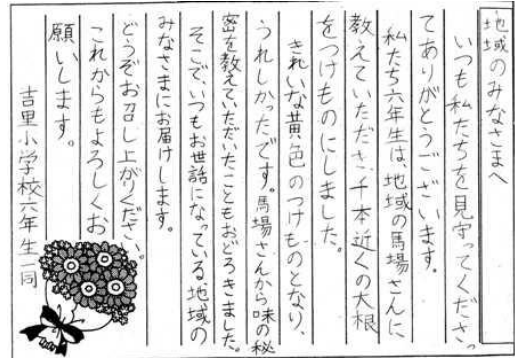 地域のみなさまへ
いつも私たちを見守ってくださっ
てありがとうございます。
私たち六年生は、地域の馬場さんに
教えていただき、千本近くの大根
をつけものにしました。
きれいな黄色のつけものとなり、
うれしかったです。馬場さんから味の秘
密を教えていただいたこともおどろきました。
そこで、いつもお世話になっている地域の
みなさまにお届けします。
どうぞお召し上がりください。
これからもよろしくお
願いします。
吉里小学校六年生一同